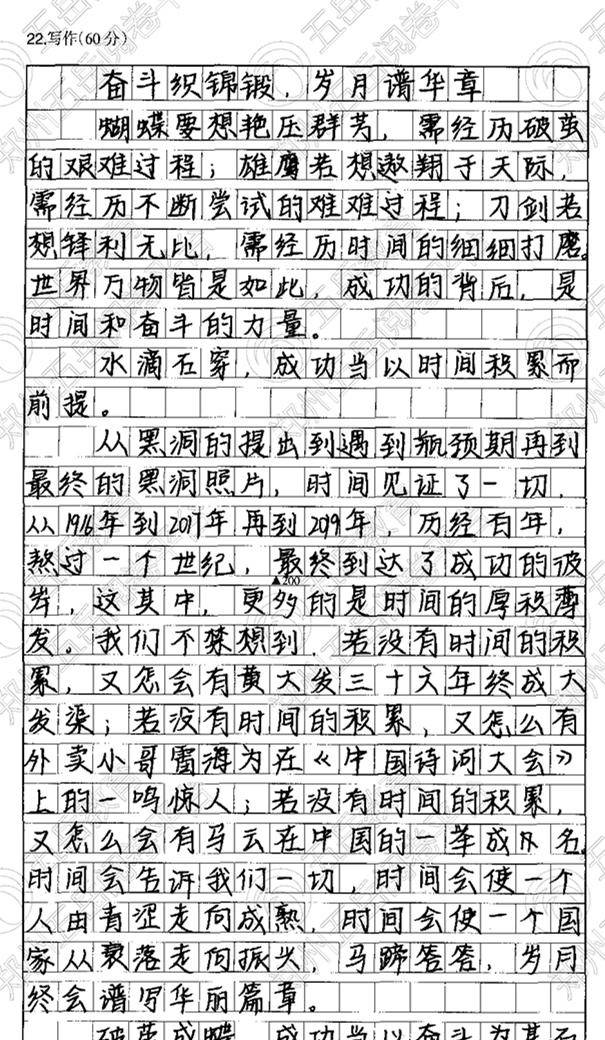 22.写作(60分)
奋斗织锦锻，岁月谱华章
蝴蝶要想艳压群芳，需经历破茧
的艰难过程；雄鹰若想遨翔于天际，
需经历不断尝试的难难过程；刀剑若
想锋利无比，需经历时间的细细打磨。
世界万物皆是如此，成功的背后，是
时间和奋斗的力量。
水滴石穿，成功当以时间积累而
前提。
从黑洞的提出到遇到瓶预期再到
最终的黑洞照片，时间见证了一切，
从1916年到2017年再到2019年，历经百年，
熬过一个世纪，最终到达了成功的彼
▲200
岸，这其中，更多的是时间的厚积薄
发。我们不禁想到，若没有时间的积
累，又怎会有黄大发三十六年终成大
发渠；若没有时间的积累，又怎么有
外卖小哥雷海为在《中国诗词大会》
上的一鸣惊人；若没有时间的积累，
又怎么会有马云在中国的一举成名。
时间会告诉我们一切，时间会使一个
人由青涩走向成熟，时间会使一个国
家从衰落走向振兴，马蹄答答，岁月
终会谱写华丽篇章。
破茧成蝶，成功当以奋斗为基石
郑州五岳阅卷